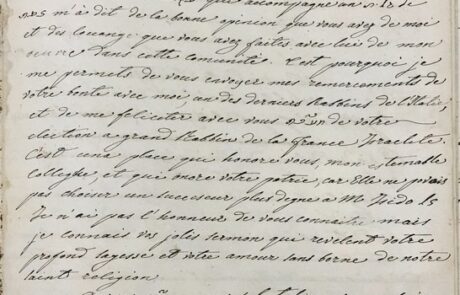 que accompagne un
m'à dit de la bonne opinion que vous avez de moi
et des louange que vous avez faites avec lui de mon
œuvre dans cette comunité. C'est pourquoi je
me permets de vous envoyer mes remerciments de
votre bonté avec moi, un des derniers Rabbins de l'Italie,
et de me feliciter avec vous de votre
election a grand Rabbin de la France Israelite.
C'est una place qui honore vous, mon estimable
colleghe, et qui onore votre patrie, car Elle ne
pu choisir un successeur plus degne a M. Isidor
Je n'ai pas l'honneur de vous connaitre mais
je connais vos jolis sermon qui revelent votre
profond sagesse et votre amour sans borne de notre
sainte religion.